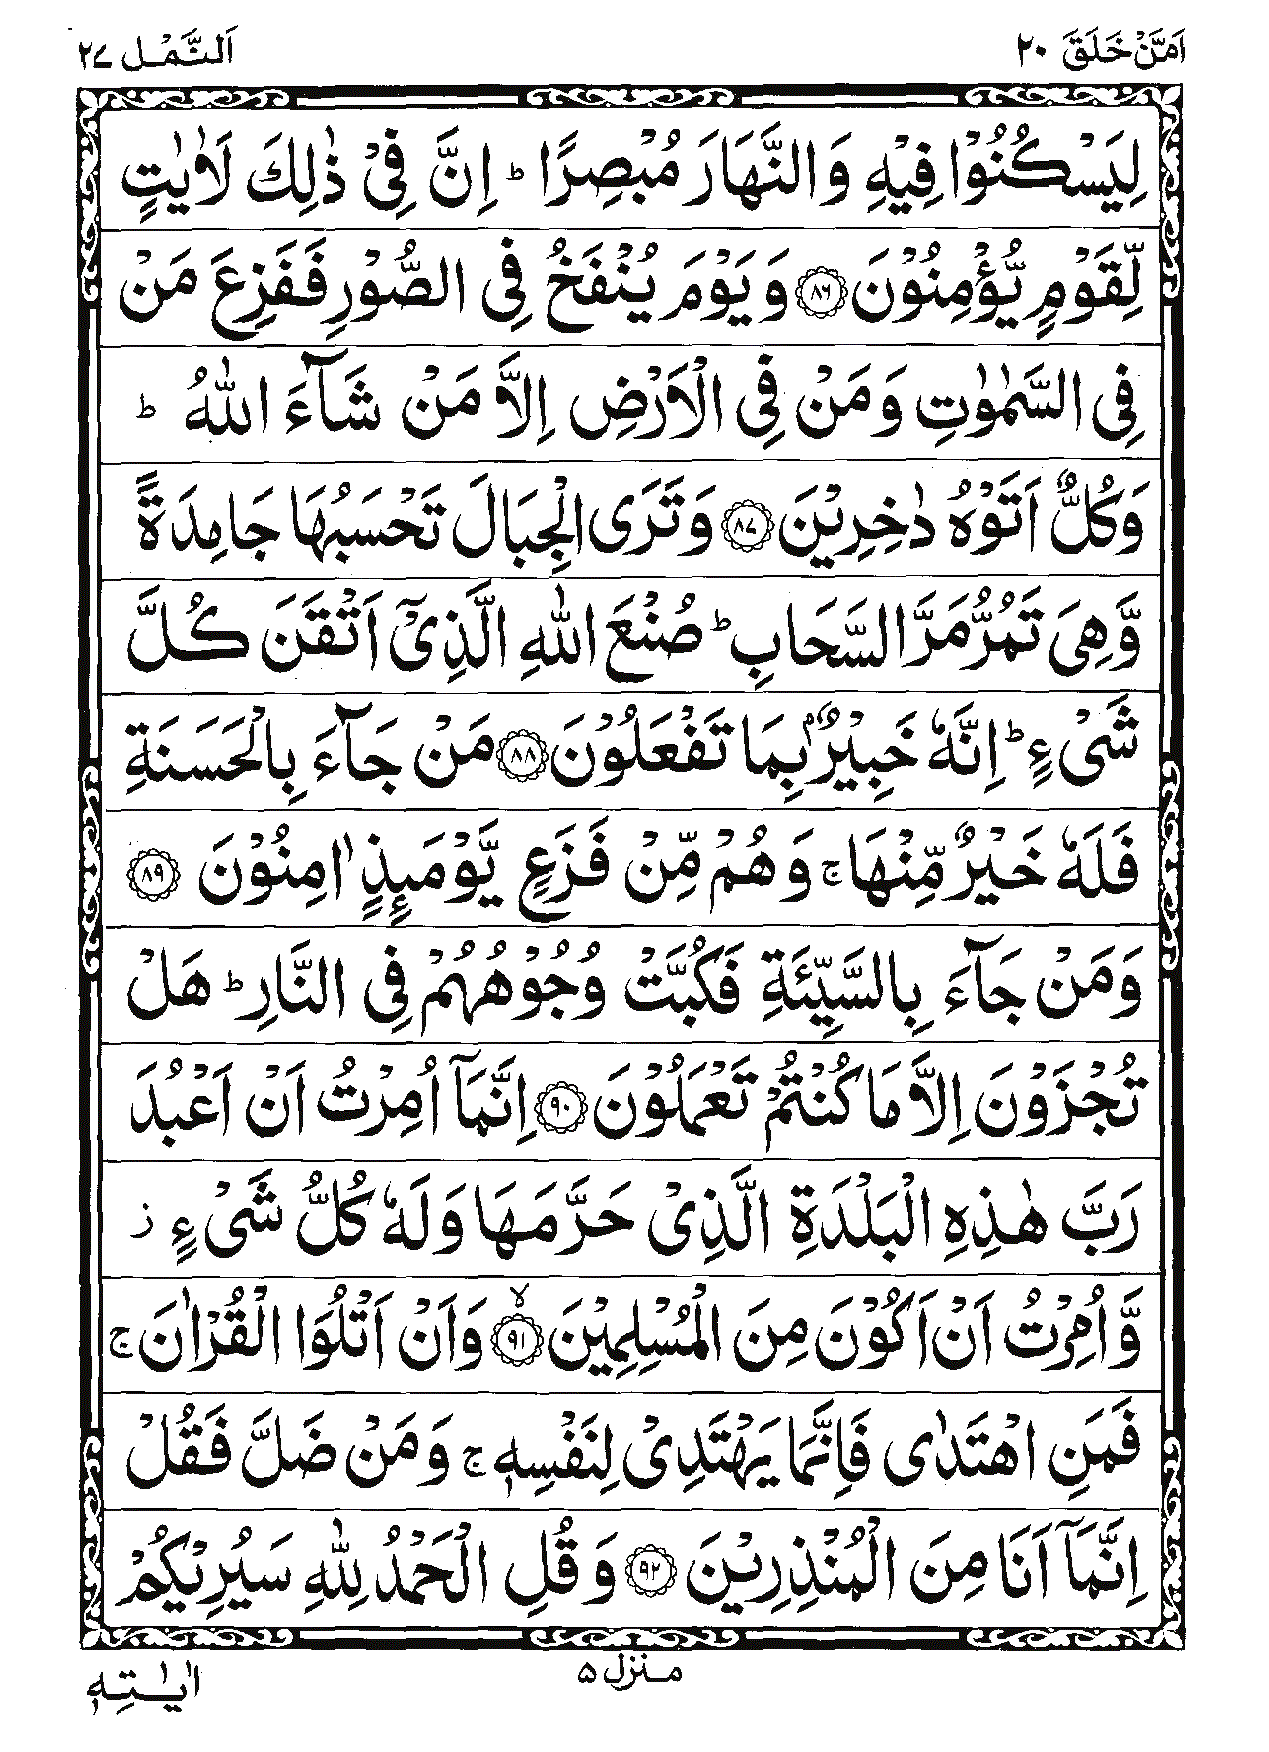 اَمَّنْ خَلَقَ ٢٠
اَلنَّمْل ٢٧
لِيَسْكُنُوْا فِيْهِ وَالنَّهَارَ مُبْصِرًا ؕ اِنَّ فِيْ ذٰلِكَ لَاٰيٰتٍ
لِّقَوْمٍ يُّؤْمِنُوْنَ ﴿٨٦﴾ وَيَوْمَ يُنْفَخُ فِي الصُّوْرِ فَفَزِعَ مَنْ
فِي السَّمٰوٰتِ وَمَنْ فِي الْاَرْضِ اِلَّا مَنْ شَآءَ اللّٰهُ ؕ
وَكُلٌّ اَتَوْهُ دٰخِرِيْنَ ﴿٨٧﴾ وَتَرَى الْجِبَالَ تَحْسَبُهَا جَامِدَةً
وَّهِيَ تَمُرُّ مَرَّ السَّحَابِ ؕ صُنْعَ اللّٰهِ الَّذِيْٓ اَتْقَنَ كُلَّ
شَيْءٍ ؕ اِنَّهٗ خَبِيْرٌۢ بِمَا تَفْعَلُوْنَ ﴿٨٨﴾ مَنْ جَآءَ بِالْحَسَنَةِ
فَلَهٗ خَيْرٌ مِّنْهَا ۚ وَهُمْ مِّنْ فَزَعٍ يَّوْمَئِذٍ اٰمِنُوْنَ ﴿٨٩﴾
وَمَنْ جَآءَ بِالسَّيِّئَةِ فَكُبَّتْ وُجُوْهُهُمْ فِي النَّارِ ؕ هَلْ
تُجْزَوْنَ اِلَّا مَا كُنْتُمْ تَعْمَلُوْنَ ﴿٩٠﴾ اِنَّمَآ اُمِرْتُ اَنْ اَعْبُدَ
رَبَّ هٰذِهِ الْبَلْدَةِ الَّذِيْ حَرَّمَهَا وَلَهٗ كُلُّ شَيْءٍ ز
وَّاُمِرْتُ اَنْ اَكُوْنَ مِنَ الْمُسْلِمِيْنَ ﴿٩١﴾ۙ وَاَنْ اَتْلُوَا الْقُرْاٰنَ ۚ
فَمَنِ اهْتَدٰى فَاِنَّمَا يَهْتَدِيْ لِنَفْسِهٖ ۚ وَمَنْ ضَلَّ فَقُلْ
اِنَّمَآ اَنَا مِنَ الْمُنْذِرِيْنَ ﴿٩٢﴾ وَقُلِ الْحَمْدُ لِلّٰهِ سَيُرِيْكُمْ
منزل ٥
اٰيٰتِهٖ